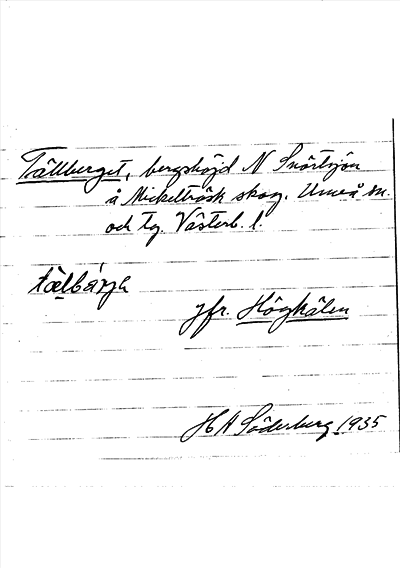 Tällberget, bergshöjd N Snörtsjön
å Mickelträsk skog. Umeå sn.
och tg. Västerb. l.
tälbárja
jfr. Högkälen
H A Söderberg 1935